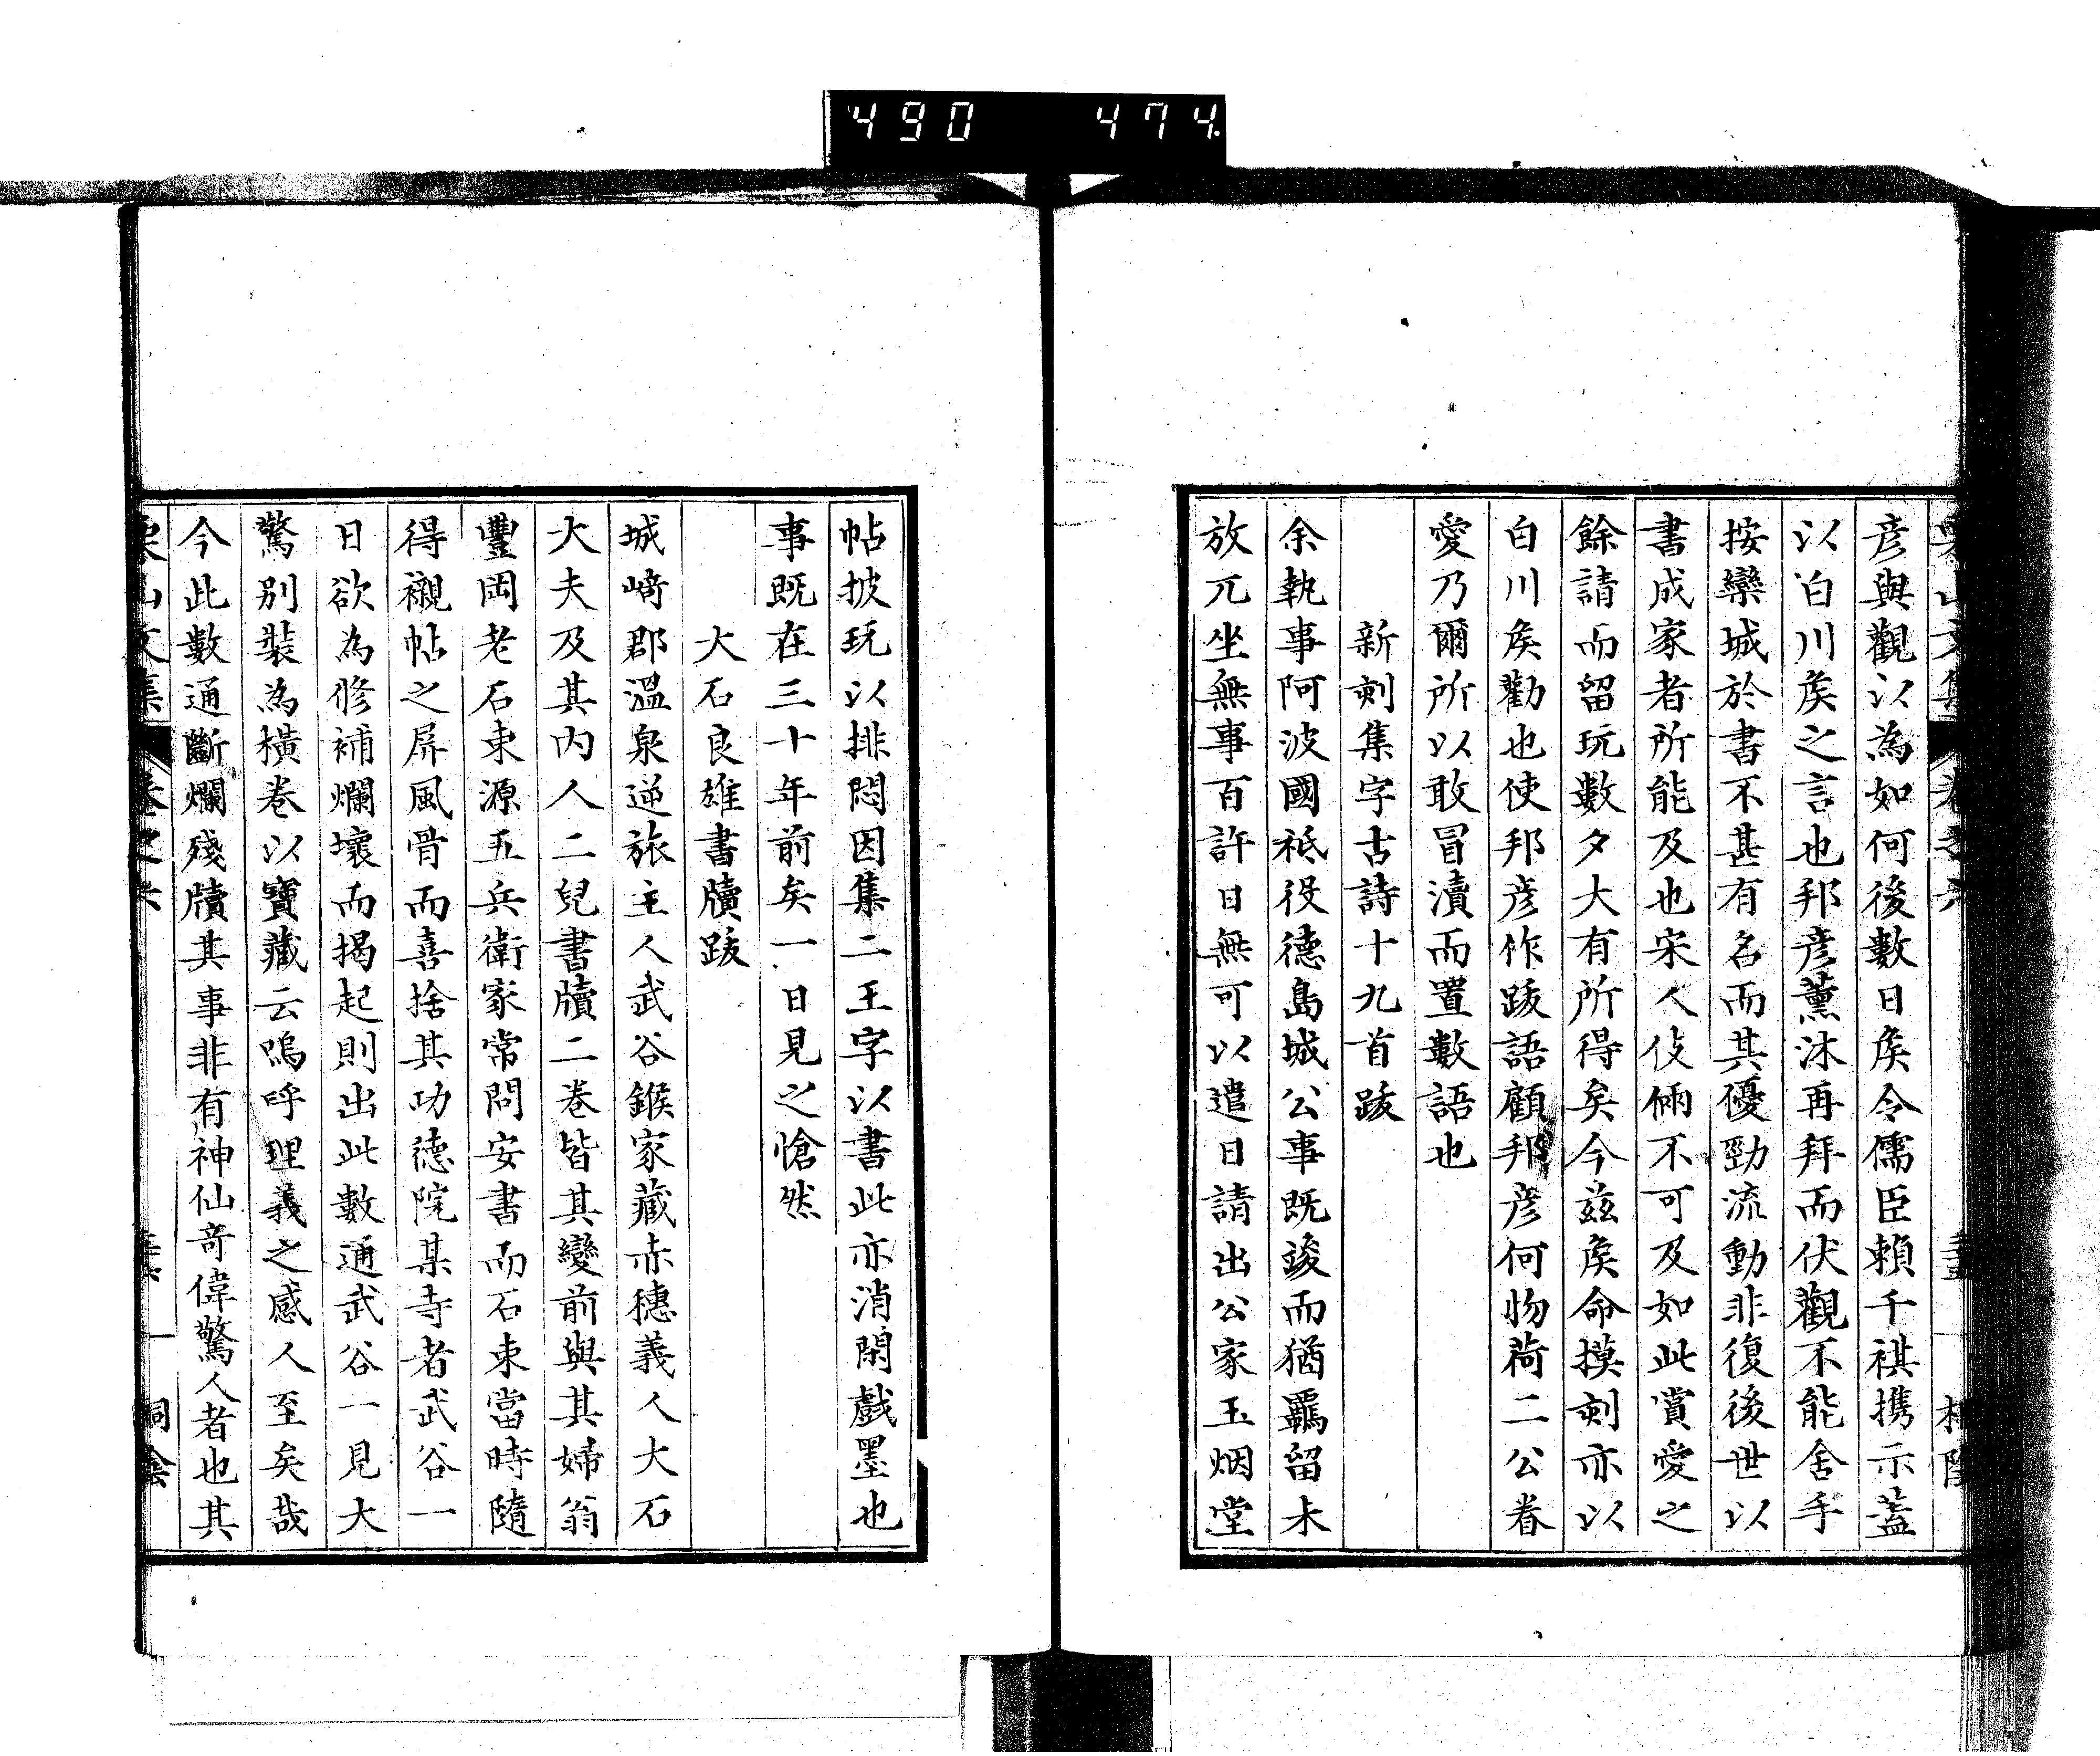 490 474
彦與觀以為如何後數日矦令儒臣賴千祺携示蓋
以白川矦之言也邦彦薰沐再拜而伏觀不能舍手
按欒城於書不甚有名而其優勁流動非復後世以
書成家者所能及也宋人伎倆不可及如此賞愛之
餘請而留玩數夕大有所得矣今茲矦命摸刻亦以
白川矦勸也使邦彦作跋語顧邦彦何物荷二公眷
愛乃爾所以敢冒瀆而置數語也
新刻集字古詩十九首跋
余執事阿波國祗役德島城公事既竣而猶羈留未
放兀坐無事百許日無可以遣日請出公家玉烟堂
帖披玩以排悶因集二王字以書此亦消閑戲墨也
事既在三十年前矣一日見之愴然
大石良雄書牘跋
城崎郡溫泉逆旅主人武谷鍭家藏赤穗義人大石
大夫及其內人二兒書牘二卷皆其變前與其婦翁
豐岡老石束源五兵衛家常問安書而石束當時隨
得襯帖之屏風骨而喜捨其功德院某寺者武谷一
日欲為修補爛壞而揭起則出此數通武谷一見大
驚別裝為橫卷以寶藏云嗚呼理義之感人至矣哉
今此數通斷爛殘牘其事非有神仙竒偉驚人者也其
栗山文集 卷之六